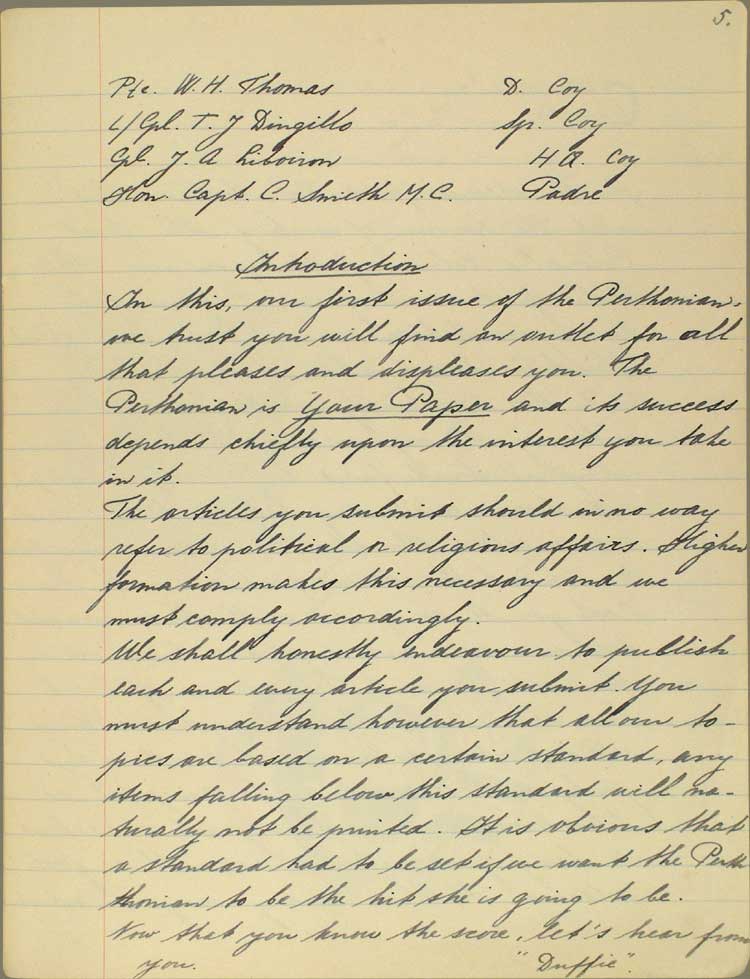 5.
Pte. W. H. Thomas D. Coy
L/Cpl. T. J Dingillo Sp. Coy
Cpl. J. A Liboiron H Q. Coy
Hon. Capt. C. Smieth M.C. Padre
Introduction
In this, our first issue of the Perthonian,
we trust you will find an outlet for all
that pleases and displeases you. The
Perthonian is Your Paper and its success
depends chiefly upon the interest you take
in it.
The articles you submit should in no way
refer to political or religious affairs. Higher
formation makes this necessary and we
must comply accordingly.
We shall honestly endeavour to publish
each and every article you submit. You
must understand however that all our to-
pics are based on a certain standard, any
items falling below this standard will na-
turally not be printed. It is obvious that
a standard had to be set if we want the Perth
thonian to be the hit she is going to be.
Now that you know the score, let's hear from
you. "Duffie".